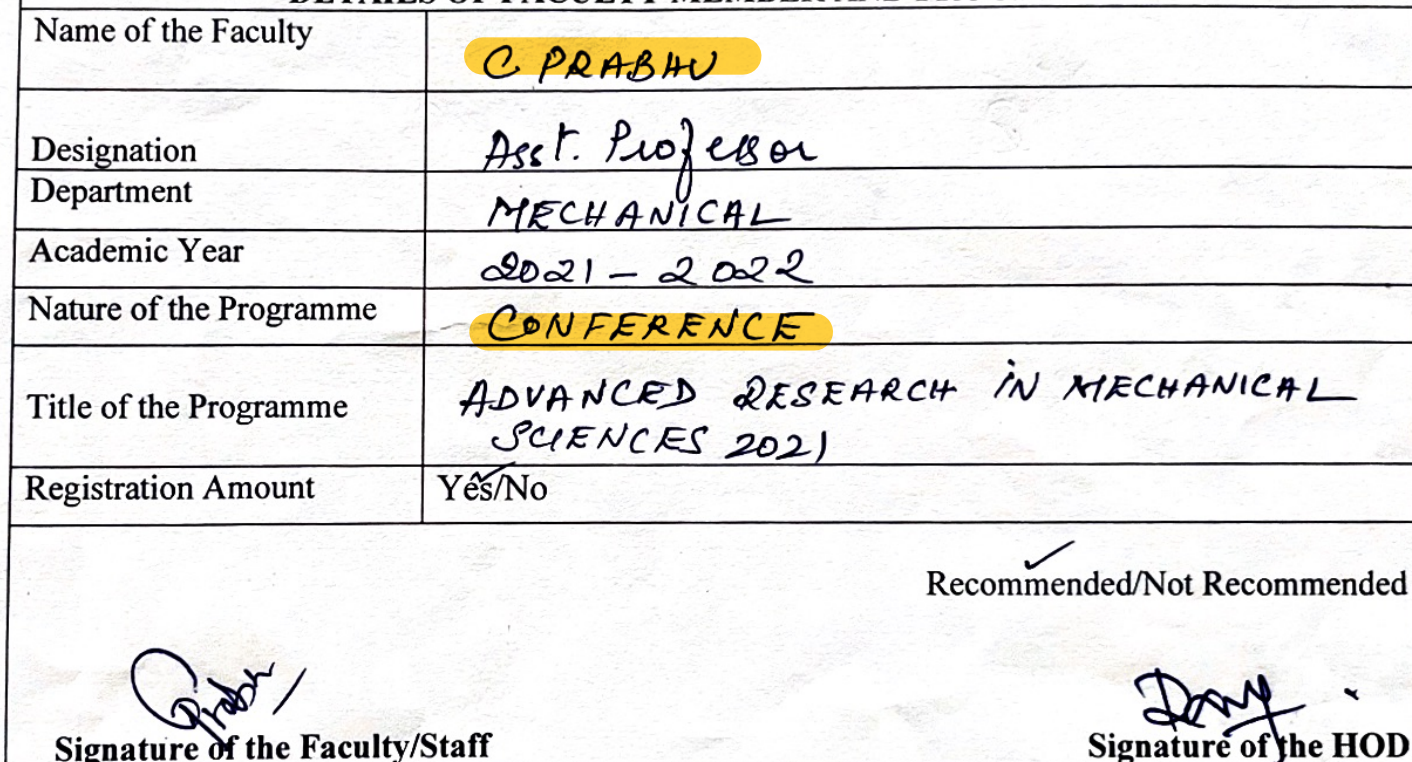 Name of the Faculty
C PRABHU
Designation
Asst. Professor
Department
MECHANICAL
Academic Year
2021 - 2022
Nature of the Programme
CONFERENCE
Title of the Programme
ADVANCED RESEARCH IN MECHANICAL
SCIENCES 2021
Registration Amount
Yes/No
Recommended/Not Recommended
Prabhu
Signature of the Faculty/Staff
Signature of the HOD